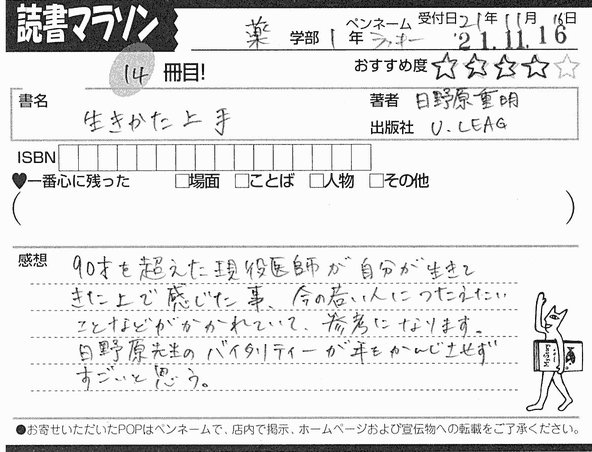 読書マラソン
薬 学部 1 年 ペンネーム ラッキー 受付日 21年 11月 16日
'21.11.16
14 冊目! おすすめ度 ☆☆☆☆☆
書名 生きかた上手
著者 日野原重明
出版社 U.LEAG
ISBN
♥一番心に残った □場面 □ことば □人物 □その他
( )
感想
90才を超えた現役医師が自分が生きて
きた上で感じた事、今の若い人につたえたい
ことなどがかかれていて、参考になります。
日野原先生のバイタリティーが年をかんじさせず
すごいと思う。
●お寄せいただいたPOPはペンネームで、店内で掲示、ホームページおよび宣伝物への転載をご了承ください。